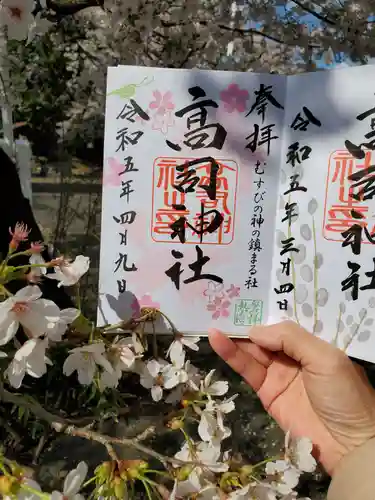 奉拝
むすびの神の鎮まる社
高司神社
令和五年四月九日
令和五年三月四日
高司神社